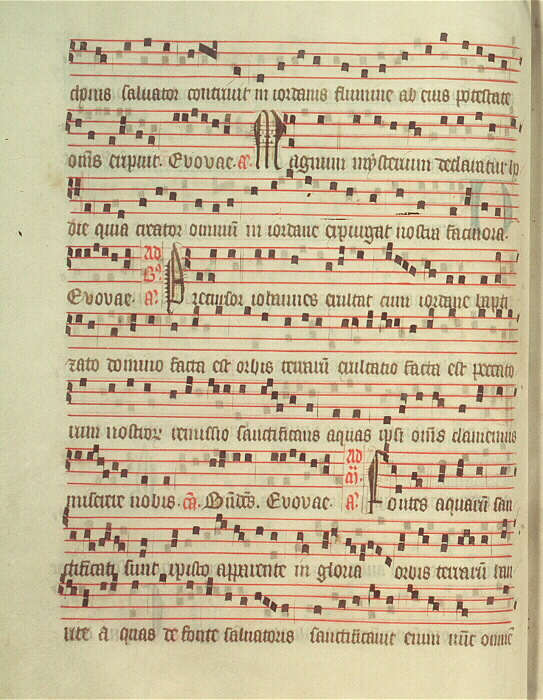 chpīus saluator contriuit in iordanis flumine ab eius potestate
om̄s eripuit. Evovae. a̅. Magnum mysterium declaratur ho
die quia creator omniū in iordane expurgat nostra facinora.
Evovae. Ad B̅s a̅. Precursor iohannes exultat cum iordane bapti
zato domino facta est orbis terrarū exultatio facta est peccato
rum nostrorꝝ remissio sanctificans aquas ipsi om̄s clamemus
miserere nobis. ca̅. Evovae. Ad m̅. a̅. Fontes aquarū san
ctificati sunt xpisto apparente in gloria orbis terrarū hau
rite a quas de fonte saluatoris sanctificauit enim nūc omnē